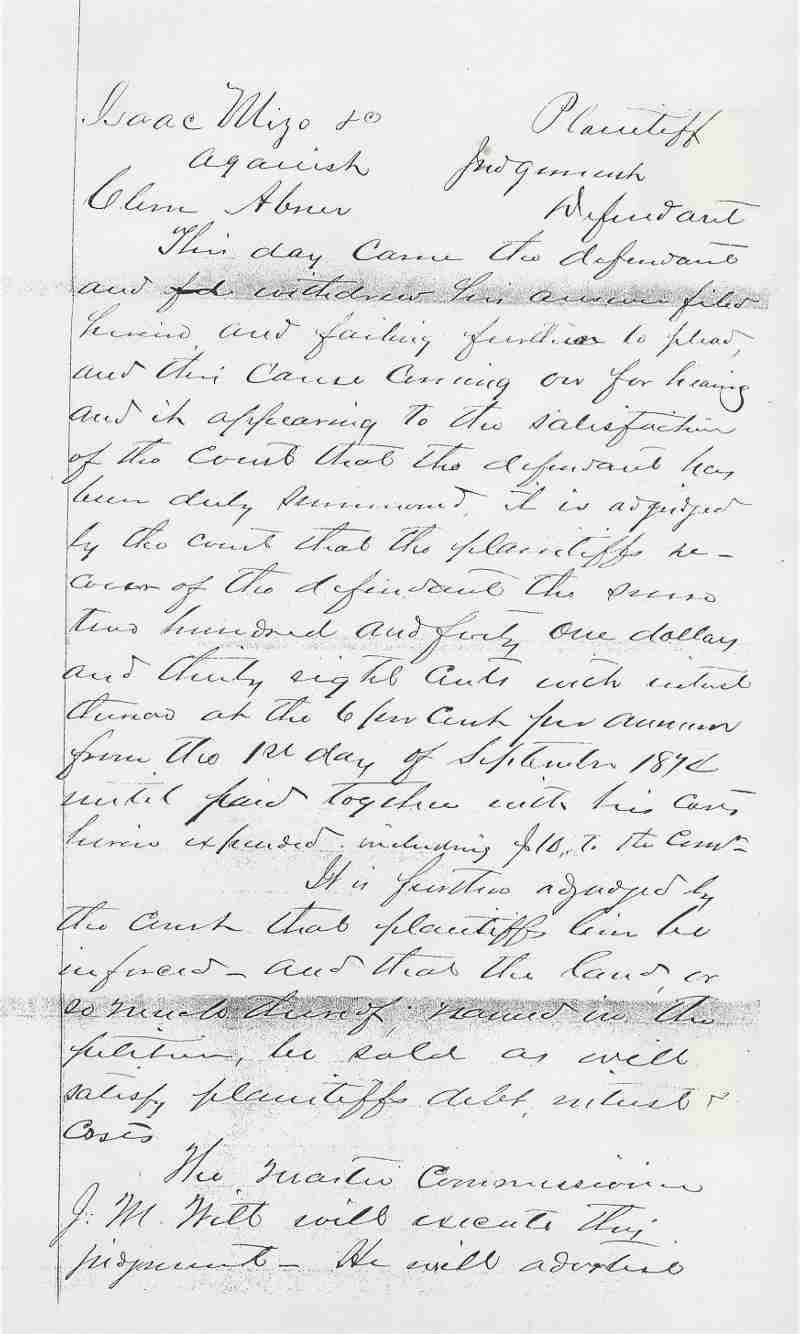 Isaac Mize &c Plaintiff
against Judgement
Clem Abner Defendant
This day came the defendant
and withdrew his answer filed
herein, and failing further to plead,
and this cause coming on for hearing
and it appearing to the satisfaction
of the court that the defendant has
been duly summoned, it is adjudged
by the court that the plaintiffs re-
cover of the defendant the sum
two hundred and forty one dollars
and thirty eight cents with interest
thereon at the 6 per cent per annum
from the 1st day of September
until paid together with his costs
herein expended. including $10,, to the
It is further adjudged by
the court that plaintiffs lien be
inforced - and that the land, or
so much thereof, named in the
petition, be sold as will
satisfy plaintiffs debt, interest &
costs
The Master Commissioner
J. M. Will will execute this
judgment - He will advertise